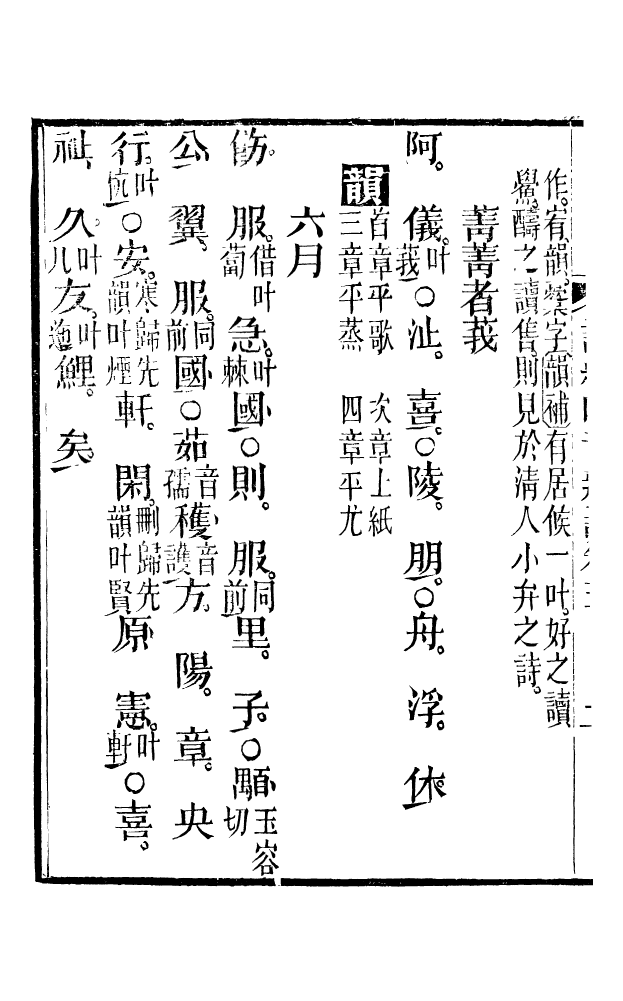 作宥韻櫱字韻補有居候一叶好之讀
鱟醻之讀售則見於清人小弁之詩
菁菁者莪
阿 儀叶莪○沚 喜○陵 朋○舟 浮 休
韻首章平歌 次章上紙三章平蒸 四章平尤
六月
飭 服借叶蔔急叶棘國○則 服同前里 子○顒玉容切
公 翼 服同前國○茹音孺穫音護方 陽 章 央
行叶杭○安寒歸先韻叶煙軒 閑刪歸先韻叶賢原 憲叶軒○喜
祉 久叶几友叶鯉 矣